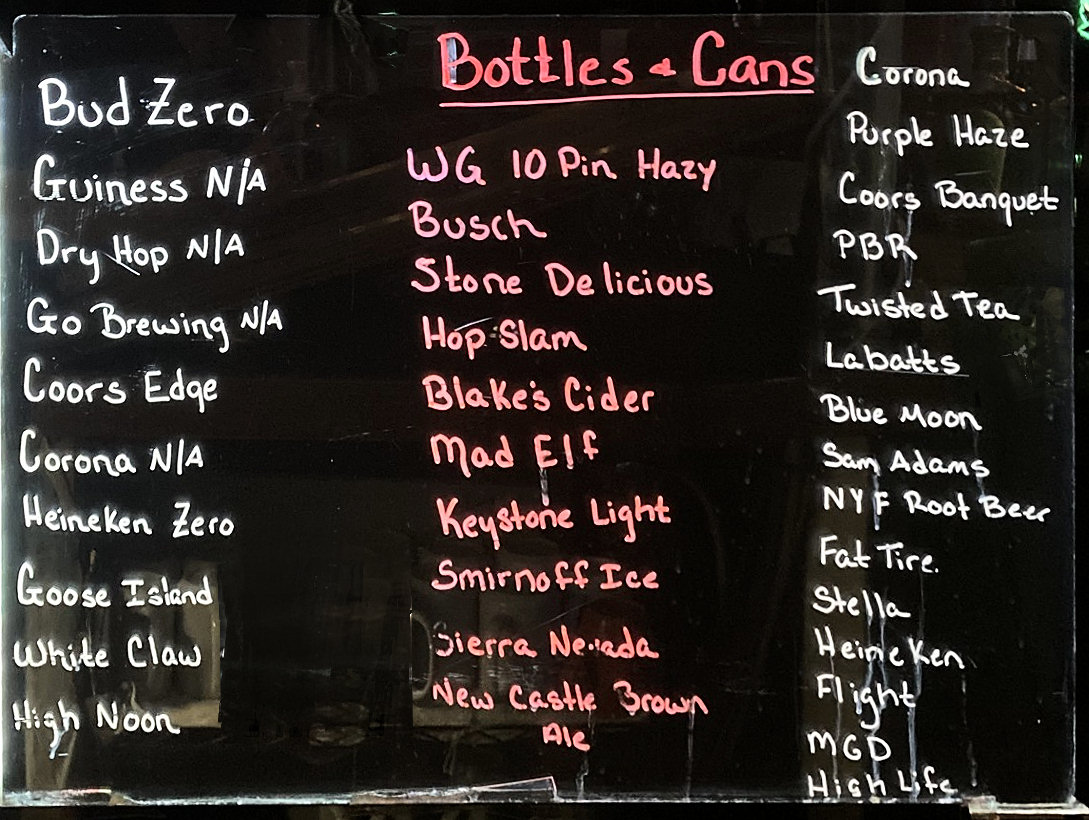 Bottles & Cans
Bud Zero
Guiness N/A
Dry Hop N/A
Go Brewing N/A
Coors Edge
Corona N/A
Heineken Zero
Goose Island
White Claw
High Noon
WG 10 Pin Hazy
Busch
Stone Delicious
Hop Slam
Blake's Cider
Mad Elf
Keystone Light
Smirnoff Ice
Sierra Nevada
New Castle Brown
Ale
Corona
Purple Haze
Coors Banquet
PBR
Twisted Tea
Labatts
Blue Moon
Sam Adams
NYF Root Beer
Fat Tire.
Stella
Heineken
Flight
MGD
High Life